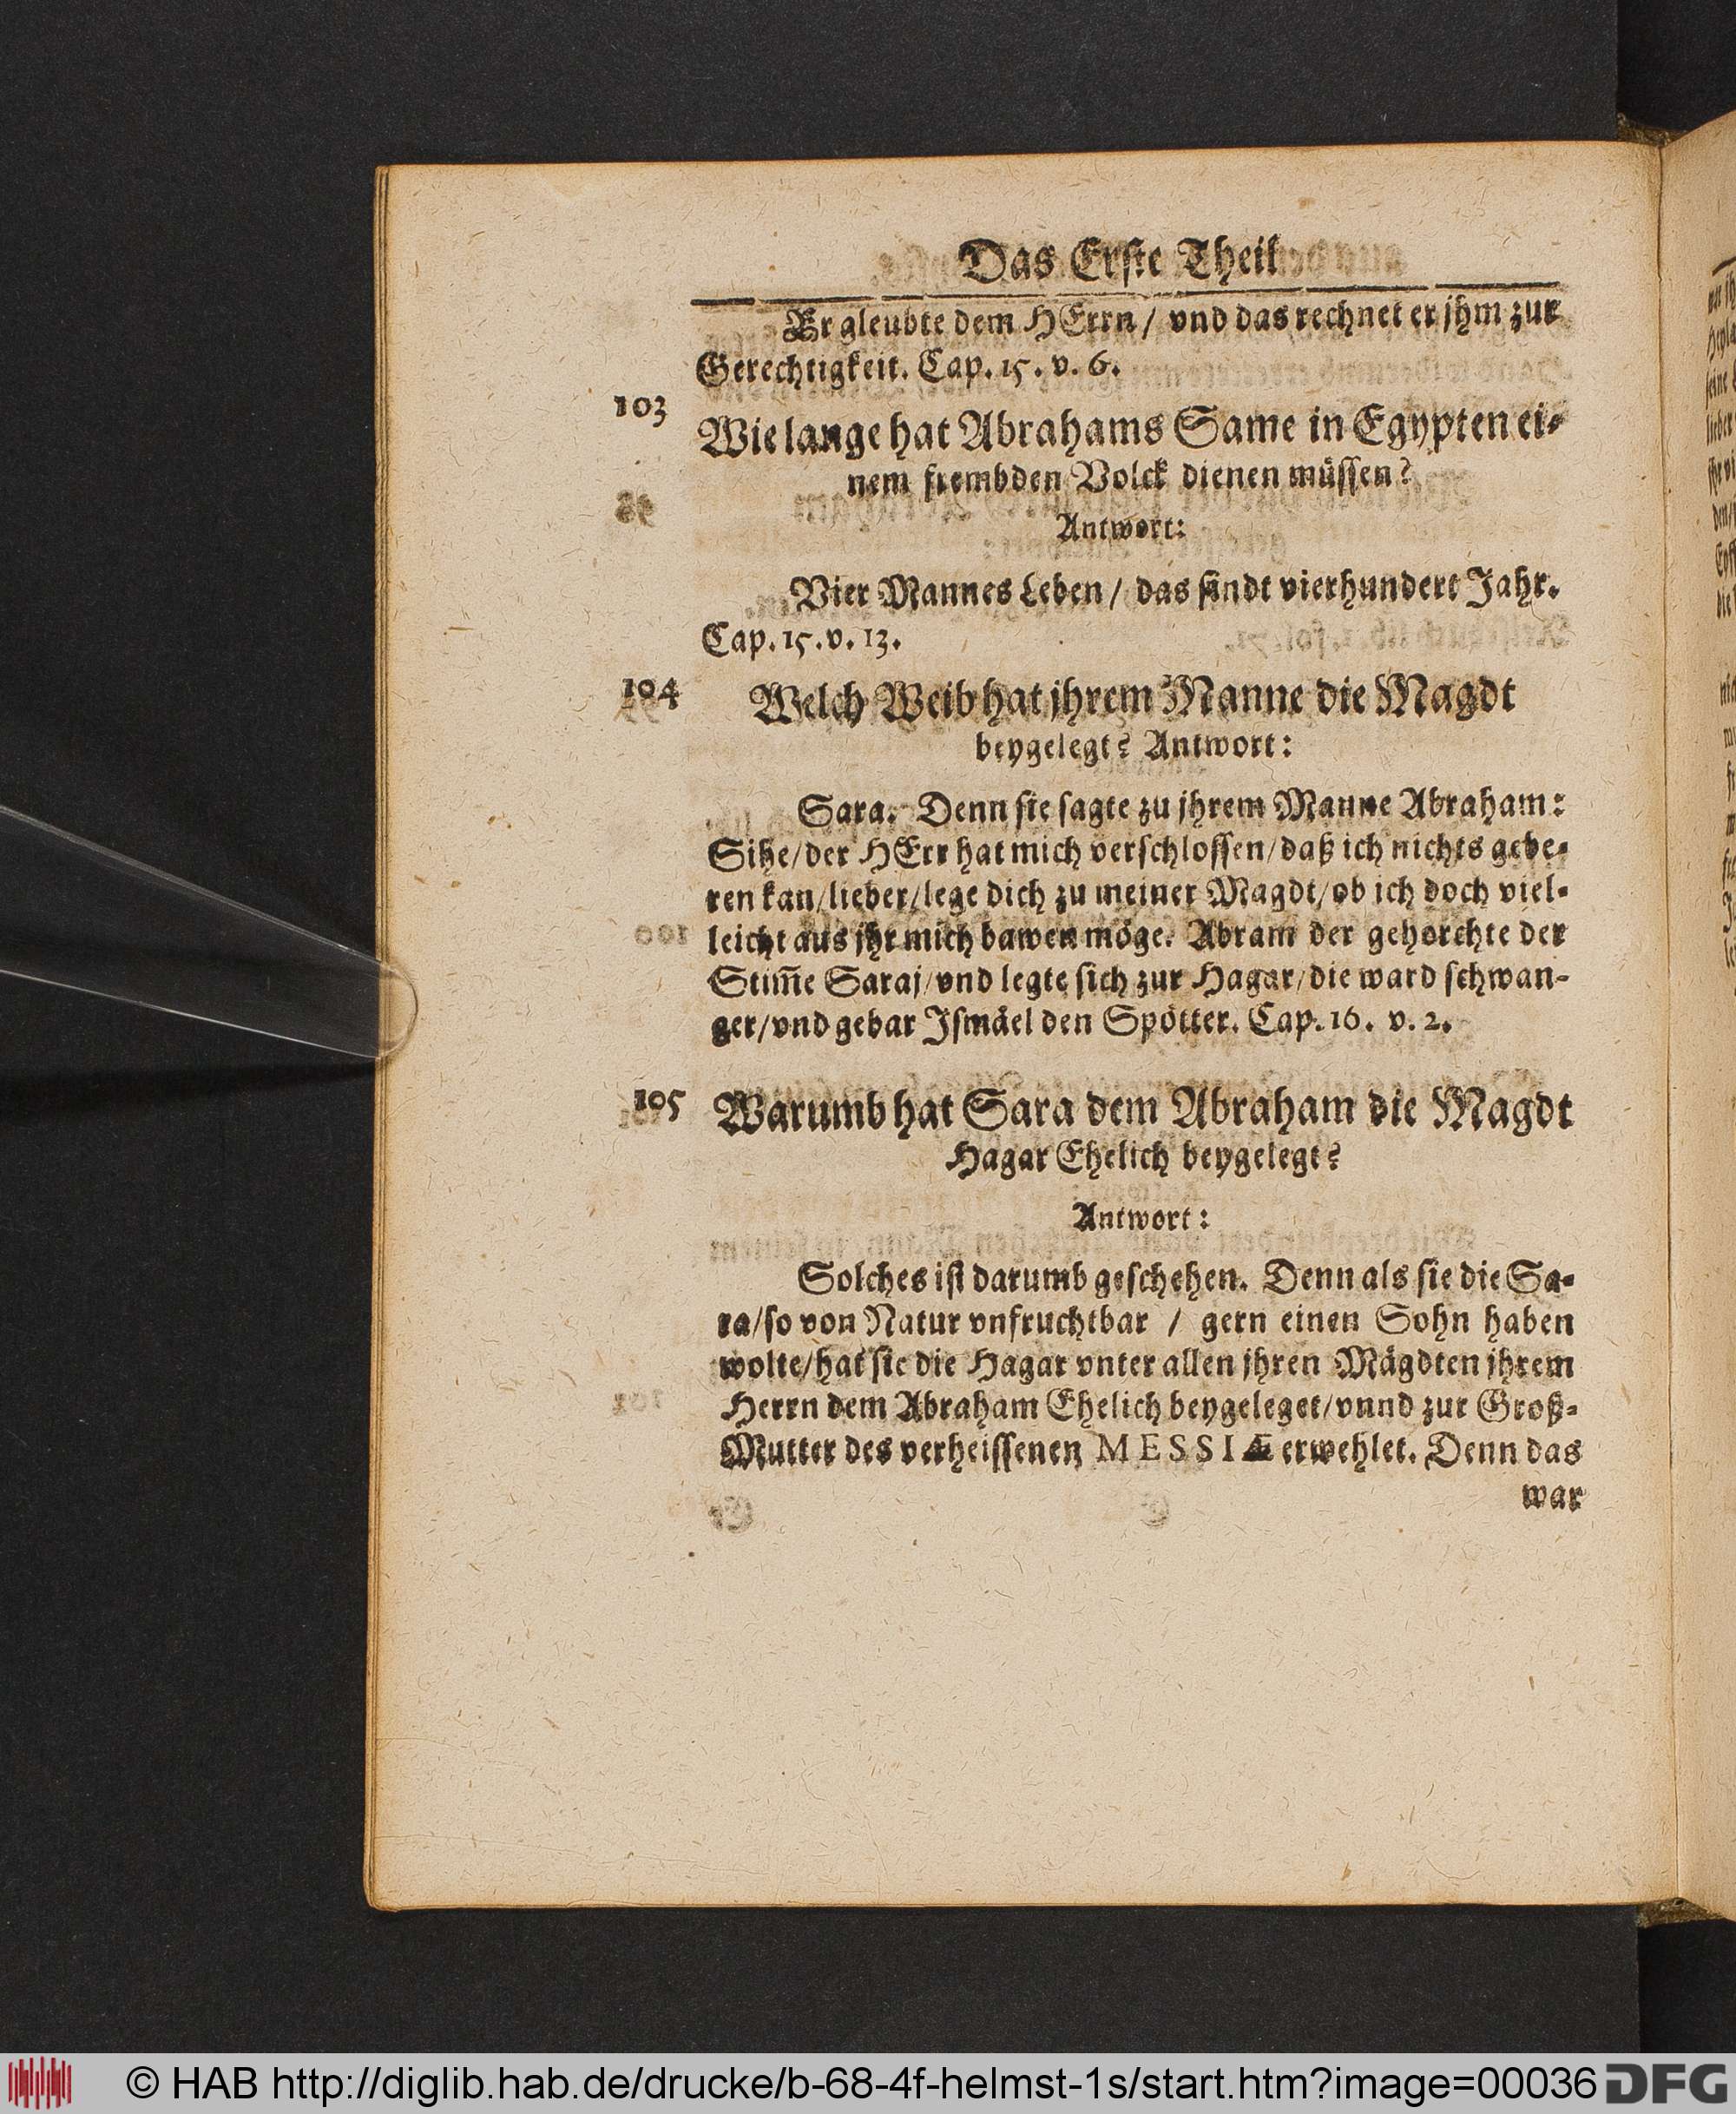 Das Erste Theil
Er gleubte dem HErrn / vnd das rechnet er jhm zur
Gerechtigkeit. Cap. 15. v. 6.
103
Wie lange hat Abrahams Same in Egypten ei-
nem frembden Volck dienen müssen?
Antwort:
Vier Mannes Leben / das sindt vierhundert Jahr.
Cap. 15. v. 13.
104 Welch Weib hat jhrem Manne die Magdt
beygelegt? Antwort:
Sara. Denn sie sagte zu jhrem Manne Abraham:
Sihe/der HErr hat mich verschlossen/daß ich nichts gebe-
ren kan/lieber/lege dich zu meiner Magdt/ob ich doch viel-
leicht aus jhr mich bawen möge. Abram der gehorchte der
Stim̃e Saraj/vnd legte sich zur Hagar/die ward schwan-
ger/vnd gebar Jsmäel den Spötter. Cap. 16. v. 2.
105 Warumb hat Sara dem Abraham die Magdt
Hagar Ehelich beygelegt?
Antwort:
Solches ist darumb geschehen. Denn als sie die Sa-
ra/so von Natur vnfruchtbar / gern einen Sohn haben
wolte/hat sie die Hagar vnter allen jhren Mägdten jhrem
Herrn dem Abraham Ehelich beygeleget/vnnd zur Groß-
Mutter des verheissenen MESSIÆ erwehlet. Denn das
war
© HAB http://diglib.hab.de/drucke/b-68-4f-helmst-1s/start.htm?image=00036 DFG